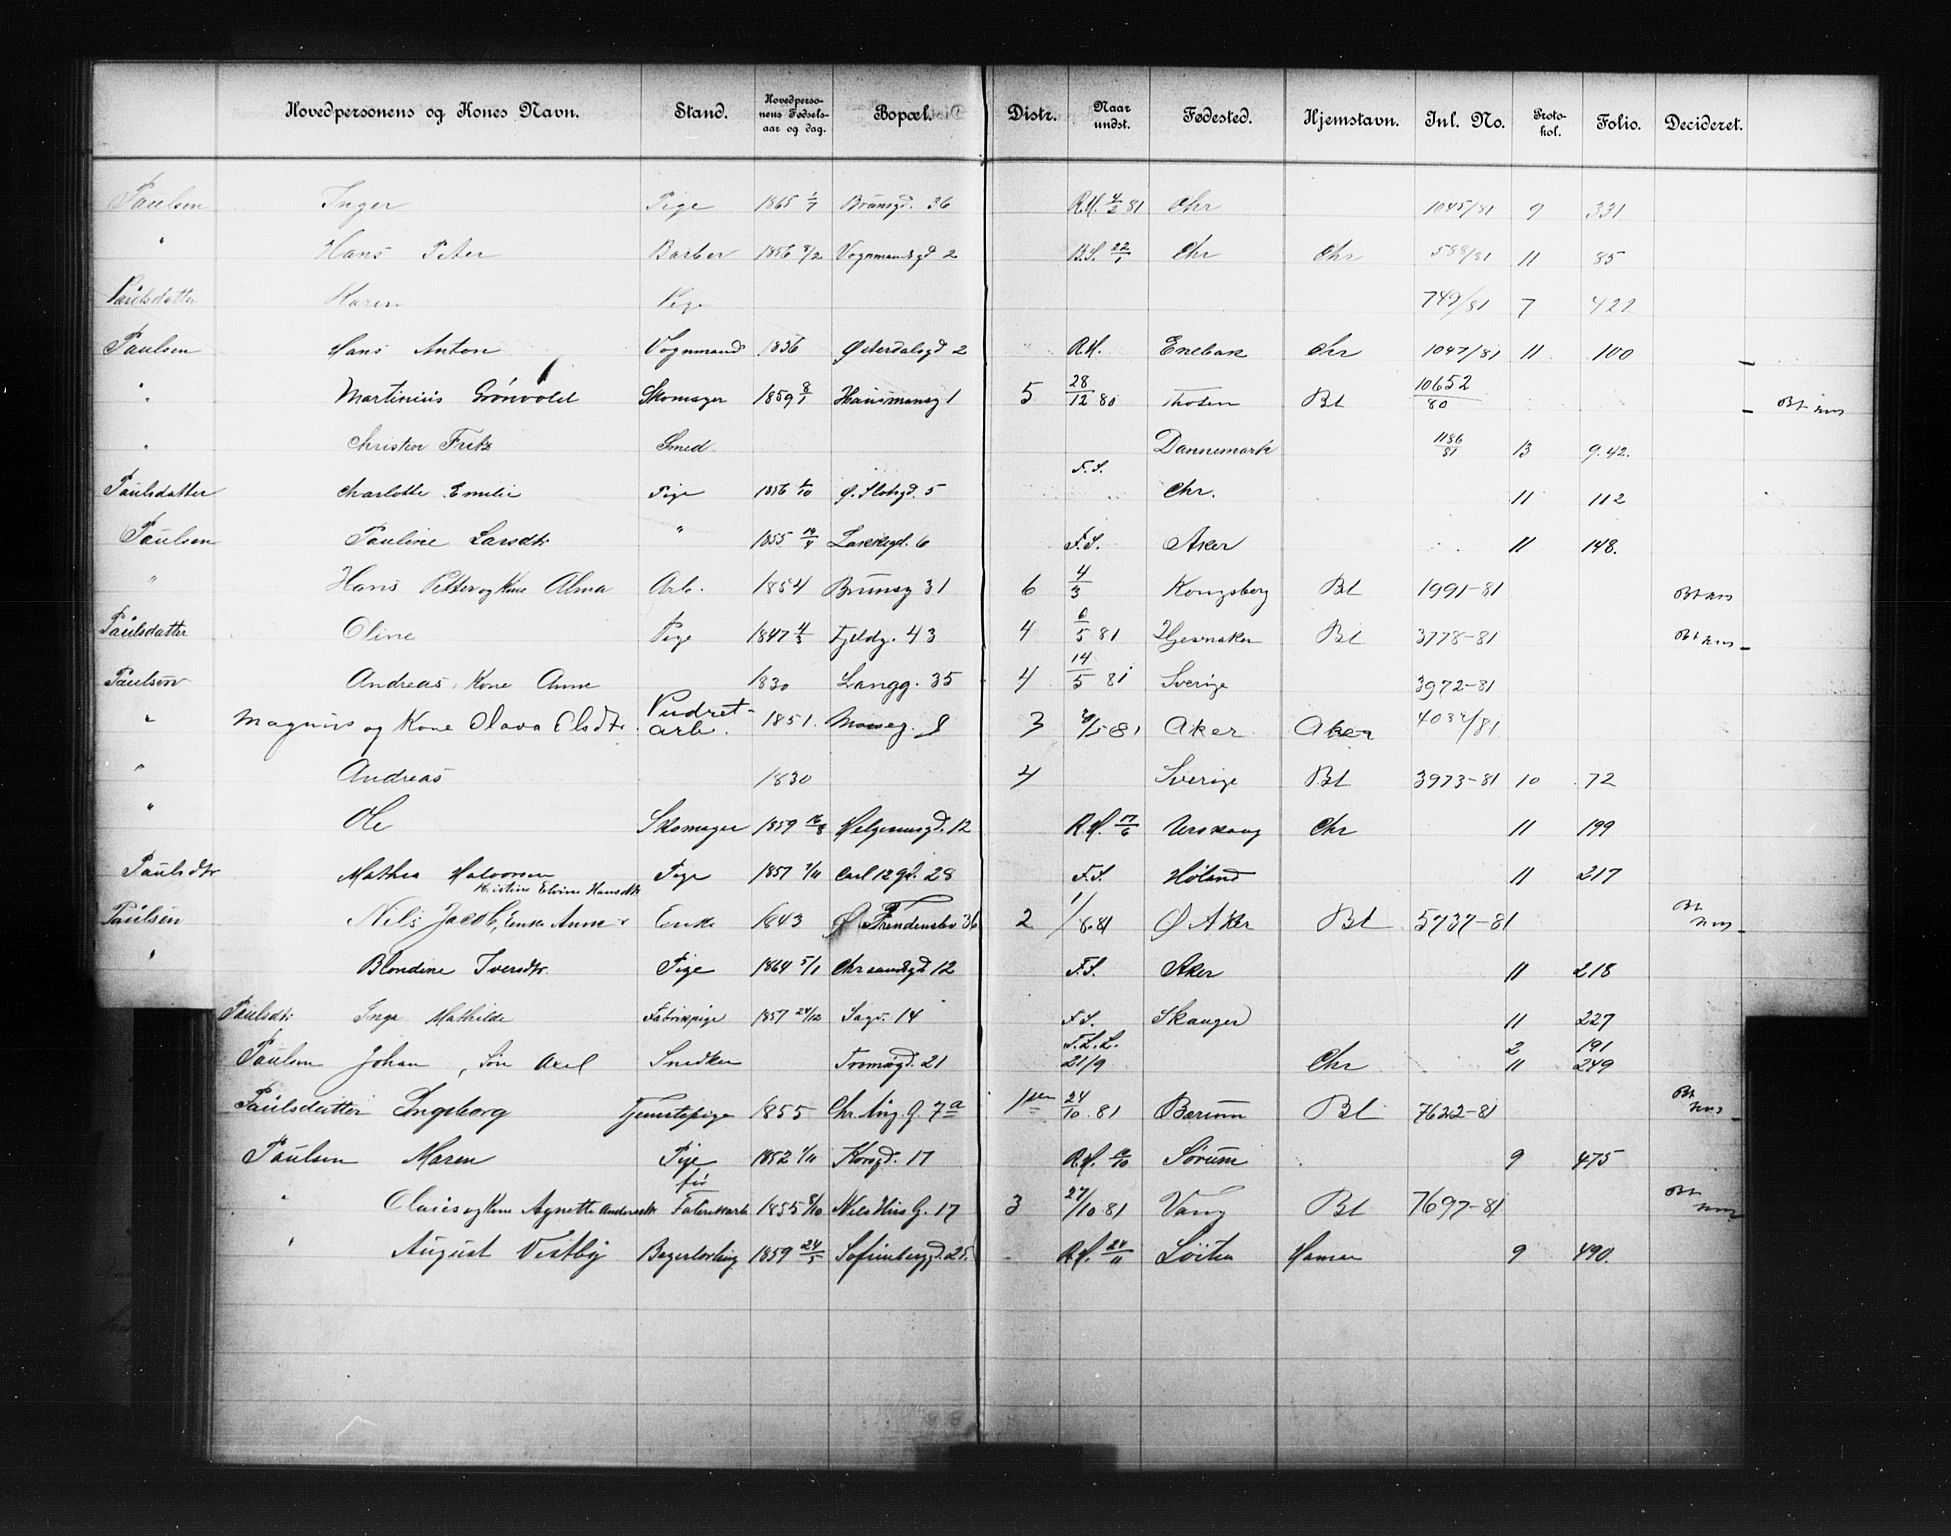 Hovedpersonens og Kones Navn. Stand. Hovedpersonens Fødselsaar og dag. Bopæl. Distr. Naar undst. Fødested. Hjemstavn. Inl. No. Protokol. Folio. Decideret.
Paulsen Inger Pige 1865 1/7 Brünsgd. 36 R.H. 4/2 81 Chr 1045/81 9 331
" Hans Peter Barber 1856 8/2 Vognmandsgd 2 B.S. 22/1 Chr Chr 588/81 11 85
Paulsdatter Karen Pige 749/81 7 422
Paulsen Hans Anton Vognmand 1836 Østerdalsgd 2 R.H. Enebak Chr 1047/81 11 100
" Martinius Grönvold Skomager 1859 8/1 Hausmansg 1 5 28/12 80 Thoten Bt 10652/80 Bt hus
" Christen Fritz Smed Dannemark 1186/81 13 9.42.
Paulsdatter Charlotte Emilie Pige 1856 6/10 Ø. Slotsgd. 5 F.S. Chr. 11 112
Paulsen Pauline Larsdtr " 1855 19/4 Lakkegd. 6 F.S. Aker 11 148.
" Hans Petter og Kone Alma Arb. 1854 Brünsg 31 6 4/3 Kongsberg Bt 1991-81 Bt hus
Paulsdatter Oline Pige 1847 4/3 Fjeldg. 43 4 6/5 81 Hjesnaker Bt 3778-81 Bt hus
Paulsen Andreas, Kone Anne 1830 Langg. 35 4 14/5 81 Sverige 3972-81
" Magnus og Kone Olava Olsdtr. Pudret-arb. 1851. Mosseg. 8 3 /5 81 Aker Aker 4032/81
" Andreas 1830 4 Sverige Bt 3973-81 10 72
" Ole Skomager 1859 16/8 Helgesensgd. 12 R.H. 17/6 Urskoug Chr 11 199
Paulsdtr Mathea Halvorsen Pige 1857 1/11 Carl 12 gd. 28 F.S. Høland 11 217
Kristine Elvine Hansdtr
Paulsen Nils Jacob, Enke Anne Enke 1843 Ø Frendenslev 36 2 1/8.81 Ø Aker Bt 5737-81 Bt hus
" Blondine Iversdtr. Pige 1864 5/1 Chrsandsgd 12 F.S. Aker 11 218
Paulsdtr Inga Mathilde Fabrikpige 1857 24/12 Sagv. 14 F.S. Skauger 11 227
Paulsen Johan, Søn Axel Snedker Tromsøgd. 21 F.L.L. 21/9 Chr 2 11 191 249
Paulsdatter Ingeborg Tjenestepige 1855 Chr. Aug. G. 7a 1ste 24/10 81 Berum Bt 7622-81 Bt hus
Paulsen Maren Pige 1852 1/11 Korsgd. 17 R.H. 6/10 Sørum 9 475
" Olaus og Kone Agnette Andersdtr før Fabrikarb 1855 8/10 Nils Hus G. 17 3 27/10 81 Vang Bt 7697-81 Bt hus
" August Vestby Bagerlærling 1859 24/5 Sofienberggd. 25. R.H. 24/11 Löiten Hamar 9 490.